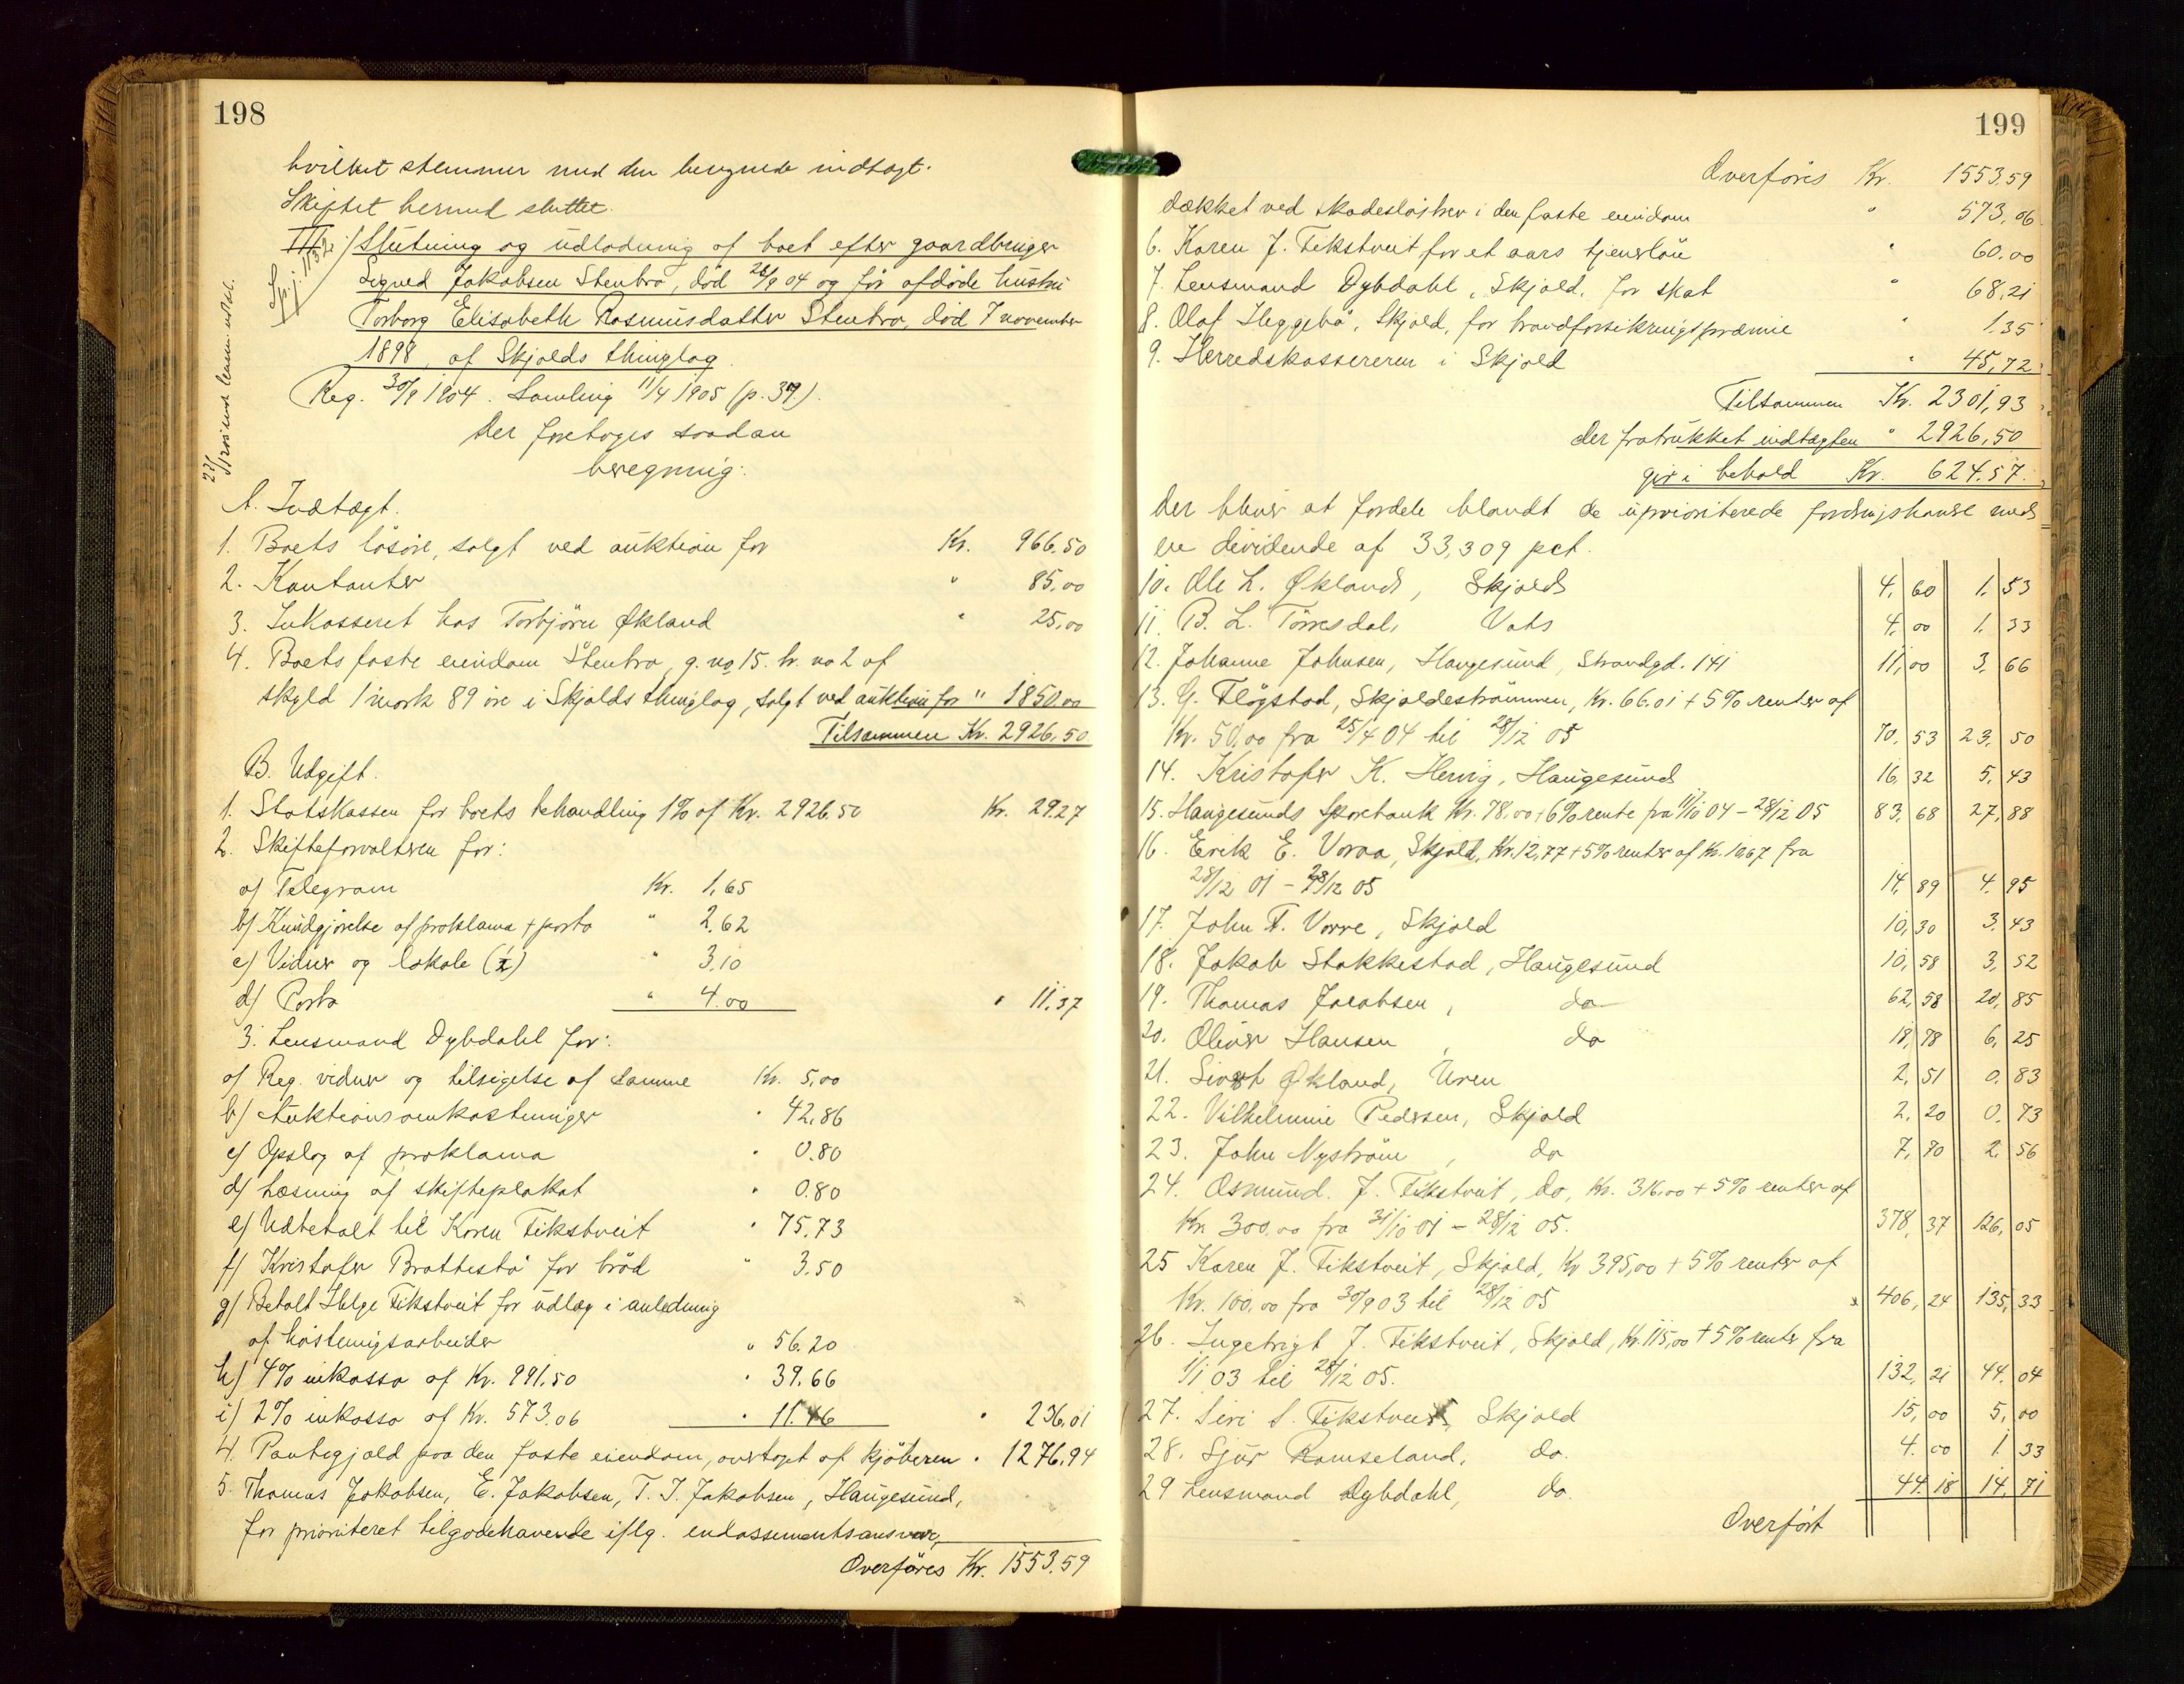 198
hvilket stemmer med den beregnede indtægt.
Skiftet hermed sluttet.
III / Slutning og udlodning af boet efter gaardbruger
Sigved Jakobsen Stenbro, död 28/9 04 og för afdöde hustru
Torborg Elisabeth Rasmusdatter Stenbro, död 7 november
1898, af Skjolds thinglag.
Reg. 30/9 1904. Samling 11/4 1905 (p. 39).
Der foretoges saadan
beregning:
A. Indtægt.
1. Boets lösöre, solgt ved auktion for Kr. 966.50
2. Kontanter " 85.00
3. Inkasseret hos Torbjörn Økland " 25.00
4. Boets faste eiendom Stenbro, g. no 15. br. no 2 af
skyld 1 mark 89 öre i Skjolds thinglag, solgt ved auktion for " 1850.00
Tilsammen Kr. 2926.50
B. Udgift.
1. Statskassen for boets behandling 1% af Kr. 2926.50 Kr. 29.27
2. Skifteforvalteren for:
a) Telegram Kr. 1.65
b) Kundgjörelse af proklama + porto " 2.62
c) Vidner og lokale (½) " 3.10
d) Porto " 4.00 " 11.37
3. Lensmand Dybdahl for:
a) Reg. vidner og tilsigelse af samme Kr. 5.00
b) Auktionsomkostninger " 42.86
c) Opslag af proklama " 0.80
d) Læsning af skifteplakat " 0.80
e) Udbetalt til Karen Tikstveit " 75.73
f) Kristofer Brattestö for bröd " 3.50
g) Betalt Helge Tikstveit for udlæg i anledning
af höstningsarbeider " 56.20
h) 4% inkasso af Kr. 991.50 " 39.66
i) 2% inkasso af Kr. 573.06 " 11.46 " 236.01
4. Pantegjæld paa den faste eiendom, overtaget af kjöberen " 1276.94
5. Thomas Jakobsen, E. Jakobsen, T. J. Jakobsen, Haugesund,
for prioriteret tilgodehavende iflg. endossementsansvar,
Overföres Kr. 1553.59
199
Overföris Kr. 1553.59
dækket ved skadeslösbrev i den faste eiendom " 573.06
6. Karen J. Tikstveit for et aars tjenerlön " 60.00
7. Lensmand Dybdahl, Skjold, for skat " 68.21
8. Olaf Heggebö, Skjold, for brandforsikringspræmie " 1.35
9. Herredskassereren i Skjold " 45,72
Tilsammen Kr. 2301,93
der fratrukket indtægten " 2926,50
gir i behold Kr. 624.57.
der bliver at fordele blandt de uprioriterede fordringshavere med
en dividende af 33,309 pct.
10. Ole L. Økland, Skjold 4,60 1.53
11. B. L. Törresdal, Vats 4.00 1.33
12. Johanne Johnsen, Haugesund, Strandgd. 141 11,00 3.66
13. G. Flögstad, Skjoldeströmmen, Kr. 66.01 + 5% renter af
Kr. 50,00 fra 25/4 04 til 28/12 05 70.53 23.50
14. Kristofer K. Hervig, Haugesund 16.32 5.43
15. Haugesunds Sparebank Kr. 78,00 + 6% rente fra 11/10 04 - 28/12 05 83.68 27,88
16. Erik E. Vorraa, Skjold, Kr. 12,77 + 5% renter af Kr. 10,67 fra
28/12 01 - 28/12 05 14.89 4.95
17. John T. Vorre, Skjold 10,30 3.43
18. Jakob Stakkestad, Haugesund 10,58 3,52
19. Thomas Jacobsen, do 62,58 20,85
20. Oliver Hansen, do 18,78 6,25
21. Sivert Økland, Üren 2,51 0.83
22. Vilhelmine Pedersen, Skjold 2.20 0.73
23. John Nyström, do 7,70 2.56
24. Osmund J. Tikstveit, do, Kr. 316,00 + 5% renter af
Kr. 300,00 fra 31/10 01 - 28/12 05. 378,37 126,05
25 Karen J. Tikstveit, Skjold, Kr 395,00 + 5% renter af
Kr. 100,00 fra 30/9 03 til 28/12 05 406,24 135,33
26. Ingebrigt J. Tikstveit, Skjold, Kr. 115,00 + 5% renter fra
1/1 03 til 28/12 05. 132,21 44.04
27. Siri S. Tikstveit, Skjold 15,00 5,00
28. Sjur Ramseland, do. 4.00 1.33
29 Lensmand Dybdahl, do. 44.18 14,71
Overfört